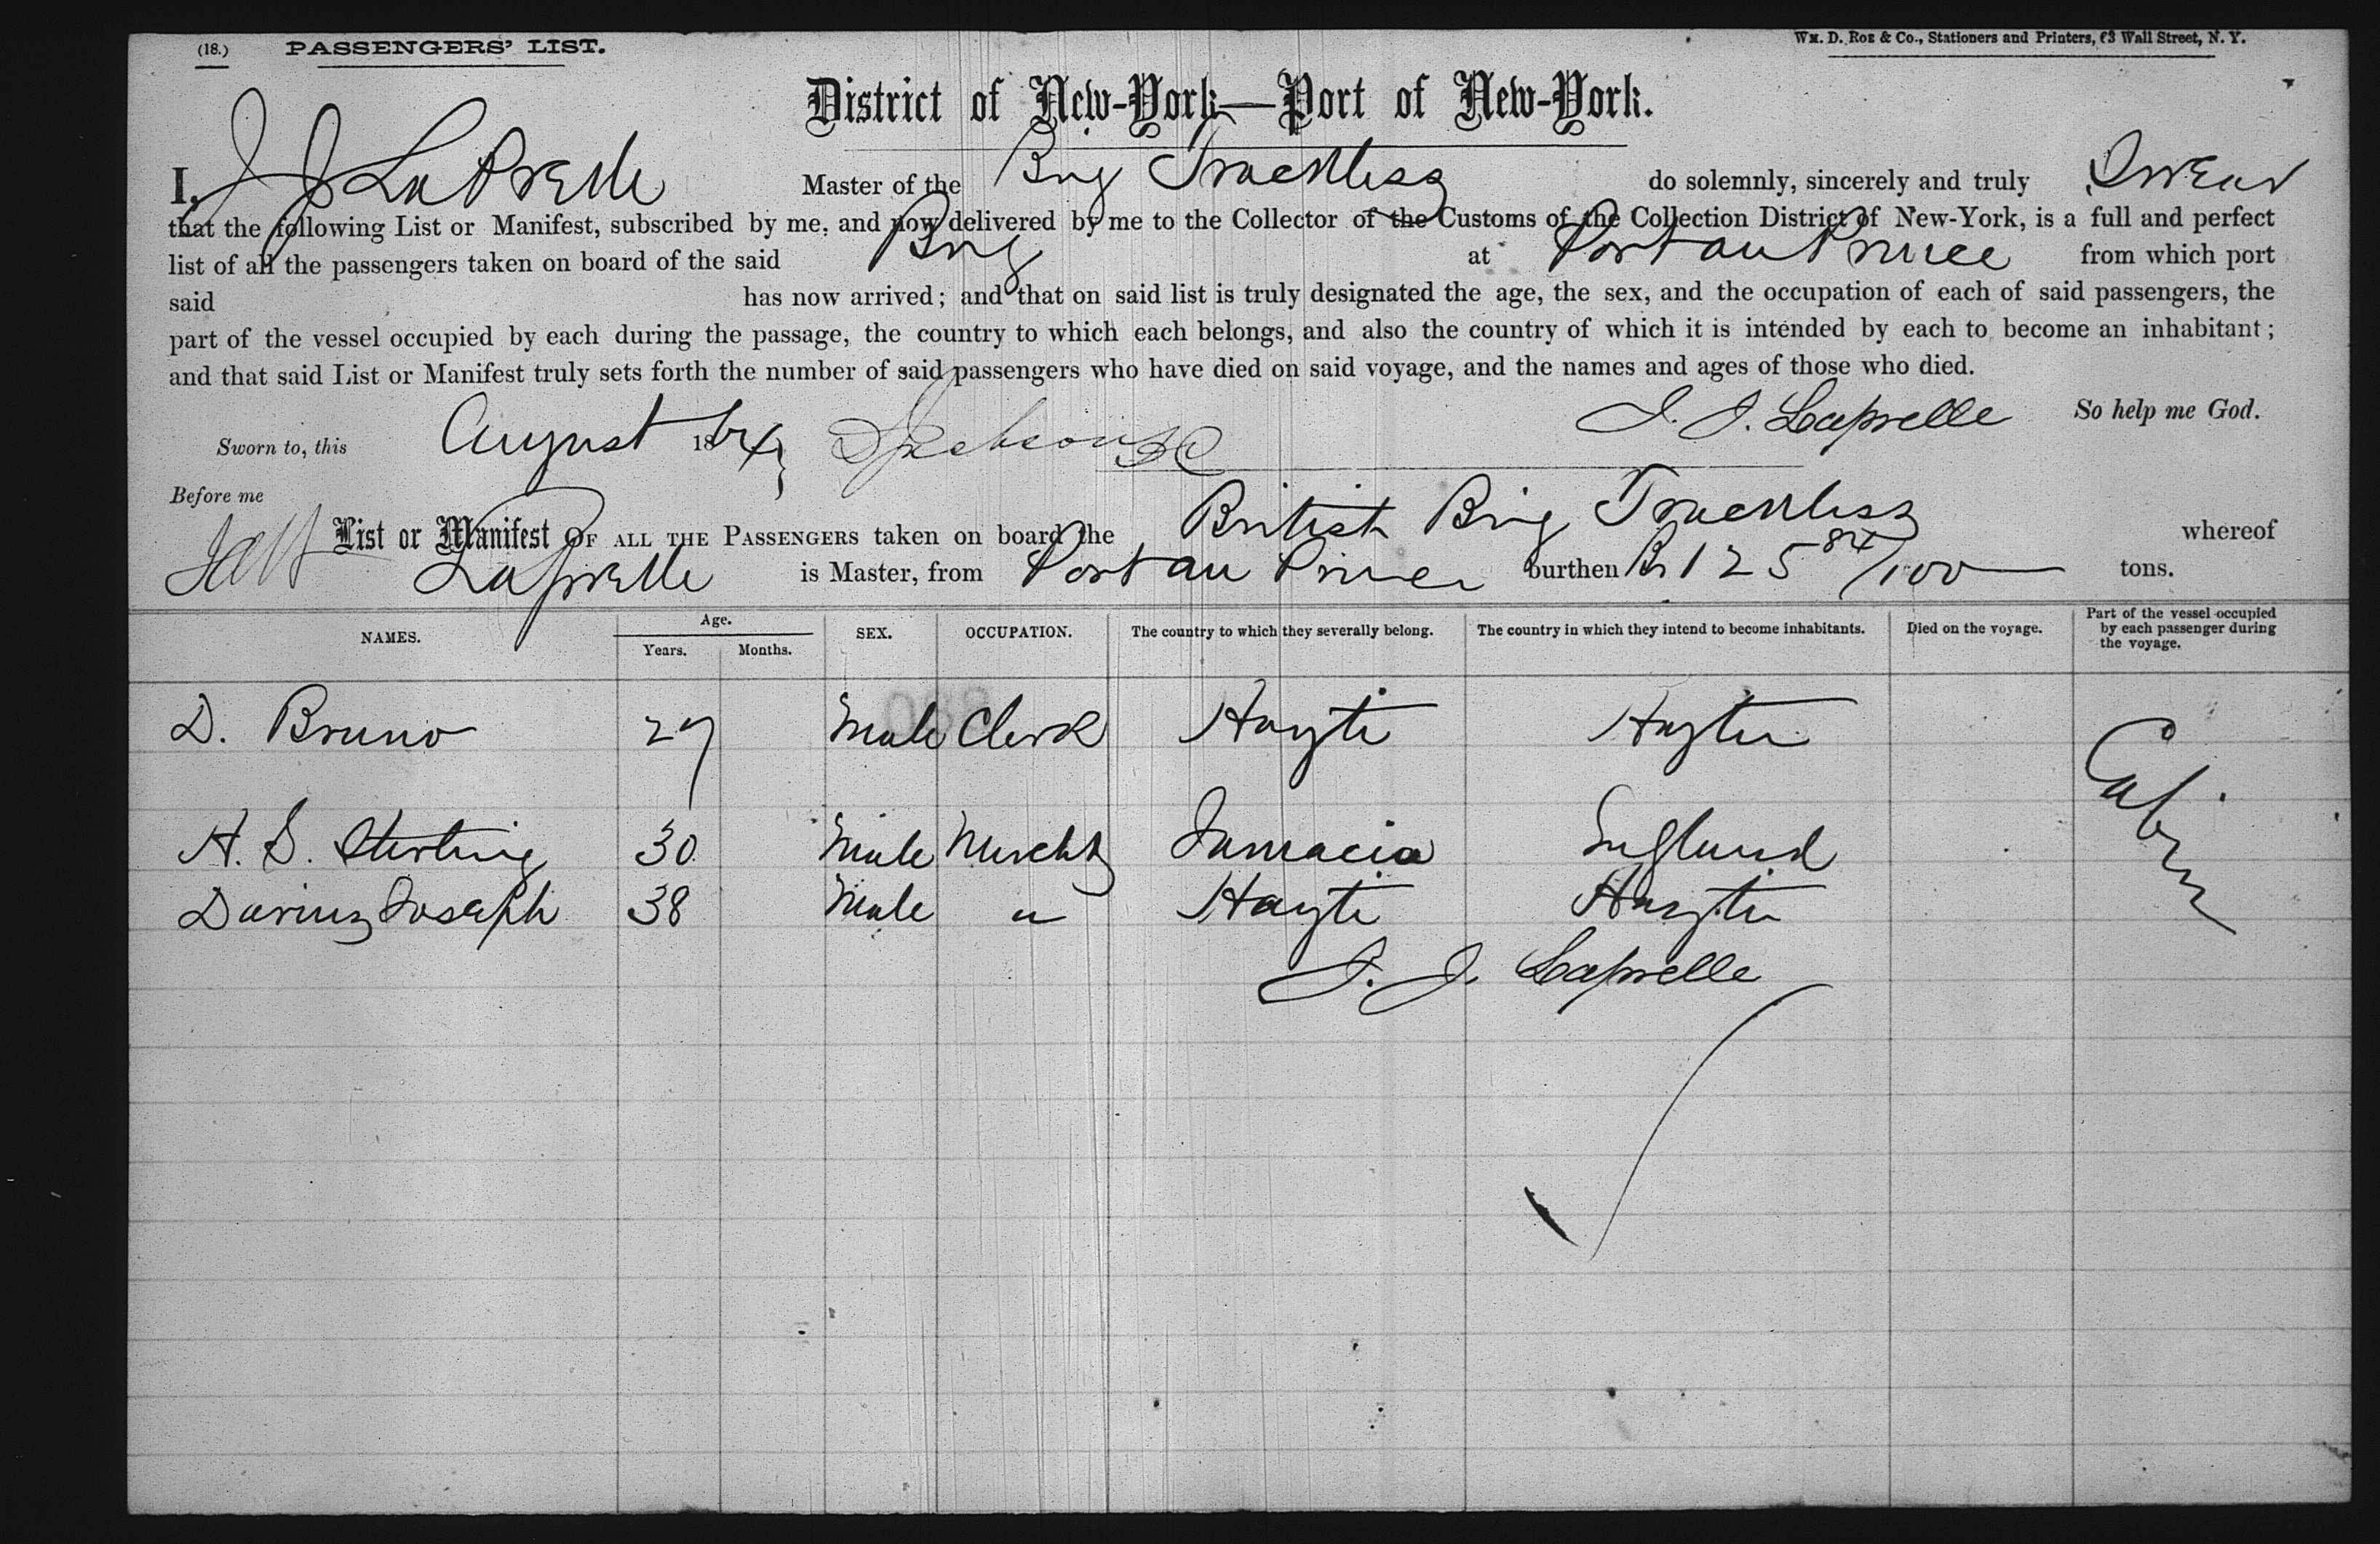 (18.) PASSENGERS' LIST. Wm. D. Roe & Co., Stationers and Printers, 63 Wall Street, N. Y.
District of New-York—Port of New-York.
I, J J LaPrelle Master of the Brig Trackless do solemnly, sincerely and truly Swear
that the following List or Manifest, subscribed by me, and now delivered by me to the Collector of the Customs of the Collection District of New-York, is a full and perfect
list of all the passengers taken on board of the said Brig at Port au Prince from which port
said has now arrived; and that on said list is truly designated the age, the sex, and the occupation of each of said passengers, the
part of the vessel occupied by each during the passage, the country to which each belongs, and also the country of which it is intended by each to become an inhabitant;
and that said List or Manifest truly sets forth the number of said passengers who have died on said voyage, and the names and ages of those who died.
J. J. Laprelle So help me God.
Sworn to, this August 1864
Before me
List or Manifest OF ALL THE PASSENGERS taken on board the British Brig Trackless whereof
LaPrelle is Master, from Port au Prince burthen Br 125 84/100 tons.
NAMES. Age. Years. Months. SEX. OCCUPATION. The country to which they severally belong. The country in which they intend to become inhabitants. Died on the voyage. Part of the vessel occupied by each passenger during the voyage.
D. Bruno 27 Male Clerk Hayti Hayti Cabin
H. S. Sterling 30 Male Mercht Jamacia England
Darius Joseph 38 Male " Hayti Hayti
J. J. Laprelle